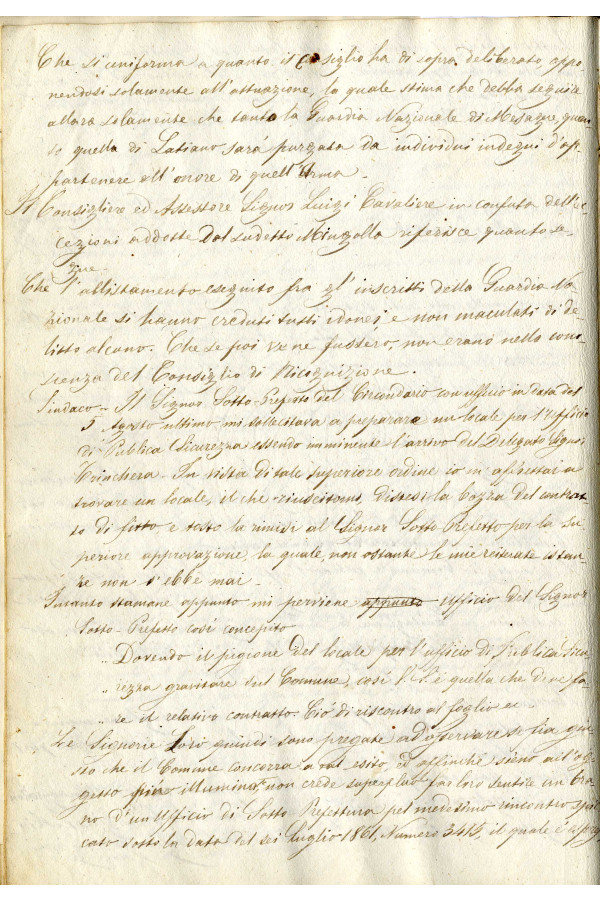 Che si uniforma a quanto il Consiglio ha di sopra deliberato, oppo-
nendosi solamente all'attuazione, la quale stima che debba seguire
allora solamente che tanto la Guardia Nazionale di Mesagne, quan-
to quella di Latiano sarà purgata da individui indegni d'ap-
partenere all'onore di quell'Arma.
Il Consigliere ed Assessore Signor Luigi Cavaliere in confuta dell'ec-
cezioni addotte dal sudetto Minzolla riferisce quanto se-
gue.
Che l'allistamento eseguito fra gl'inscritti della Guardia Na-
zionale si hanno creduti tutti idonei, e non maculati di de-
litto alcuno. Che se poi ve ne fussero, non erano nella cono-
scenza del Consiglio di Ricognizione.
Sindaco - Il Signor Sotto-Prefetto del Circondario con ufficio in data del
5 Agosto ultimo mi sollecitava a preparare un locale per l'ufficio
di Pubblica Sicurezza essendo imminente l'arrivo del Delegato Signor
Trinchera. In vista di tale superiore ordine io m'affrettai a
trovare un locale, il che riuscitomi, distesi la bozza del contrat-
to di fitto e tosto la rimisi al Signor Sotto Prefetto per la su-
periore approvazione, la quale, non ostante le mie reiterate istan-
ze non s'ebbe mai.
Intanto stamane appunto mi perviene appunto Ufficio del Signor
Sotto-Prefetto così concepito
"Dovendo il pigione del locale per l'ufficio di Pubblica Sicu-
"rezza gravitare sul Comune, così V.S. è quella che deve fa-
"re il relativo contratto. Ciò di riscontro al foglio
Le Signorie Loro quindi sono pregate ad osservare se sia giu-
sto che il Comune concorra a tal esito, ed affinché sieno all'og-
getto più non crede superfluo far loro sentire un bra-
no d'un Ufficio di Sotto Prefettura pel medesimo rincontro
cato sotto la data del sei Luglio 1861, Numero 3415, il quale è